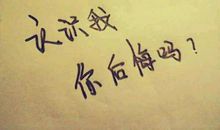 认识我
你后悔吗?